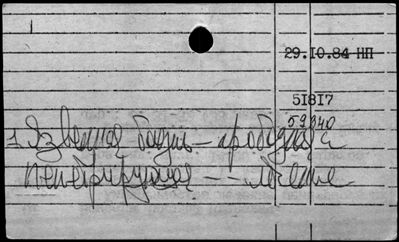 29.10.84 НП
51817
59340
1 Язвенная болезнь – прободная
пенетрирующая – лечение